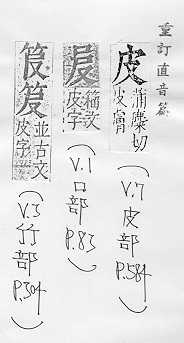 重訂直音篇
皮
蒲麋切
皮膚
(V.7 皮部 P.584)
籀文
皮字
(V.1 口部 P.83)
並古文
皮字
(V.3 竹部 P.304)